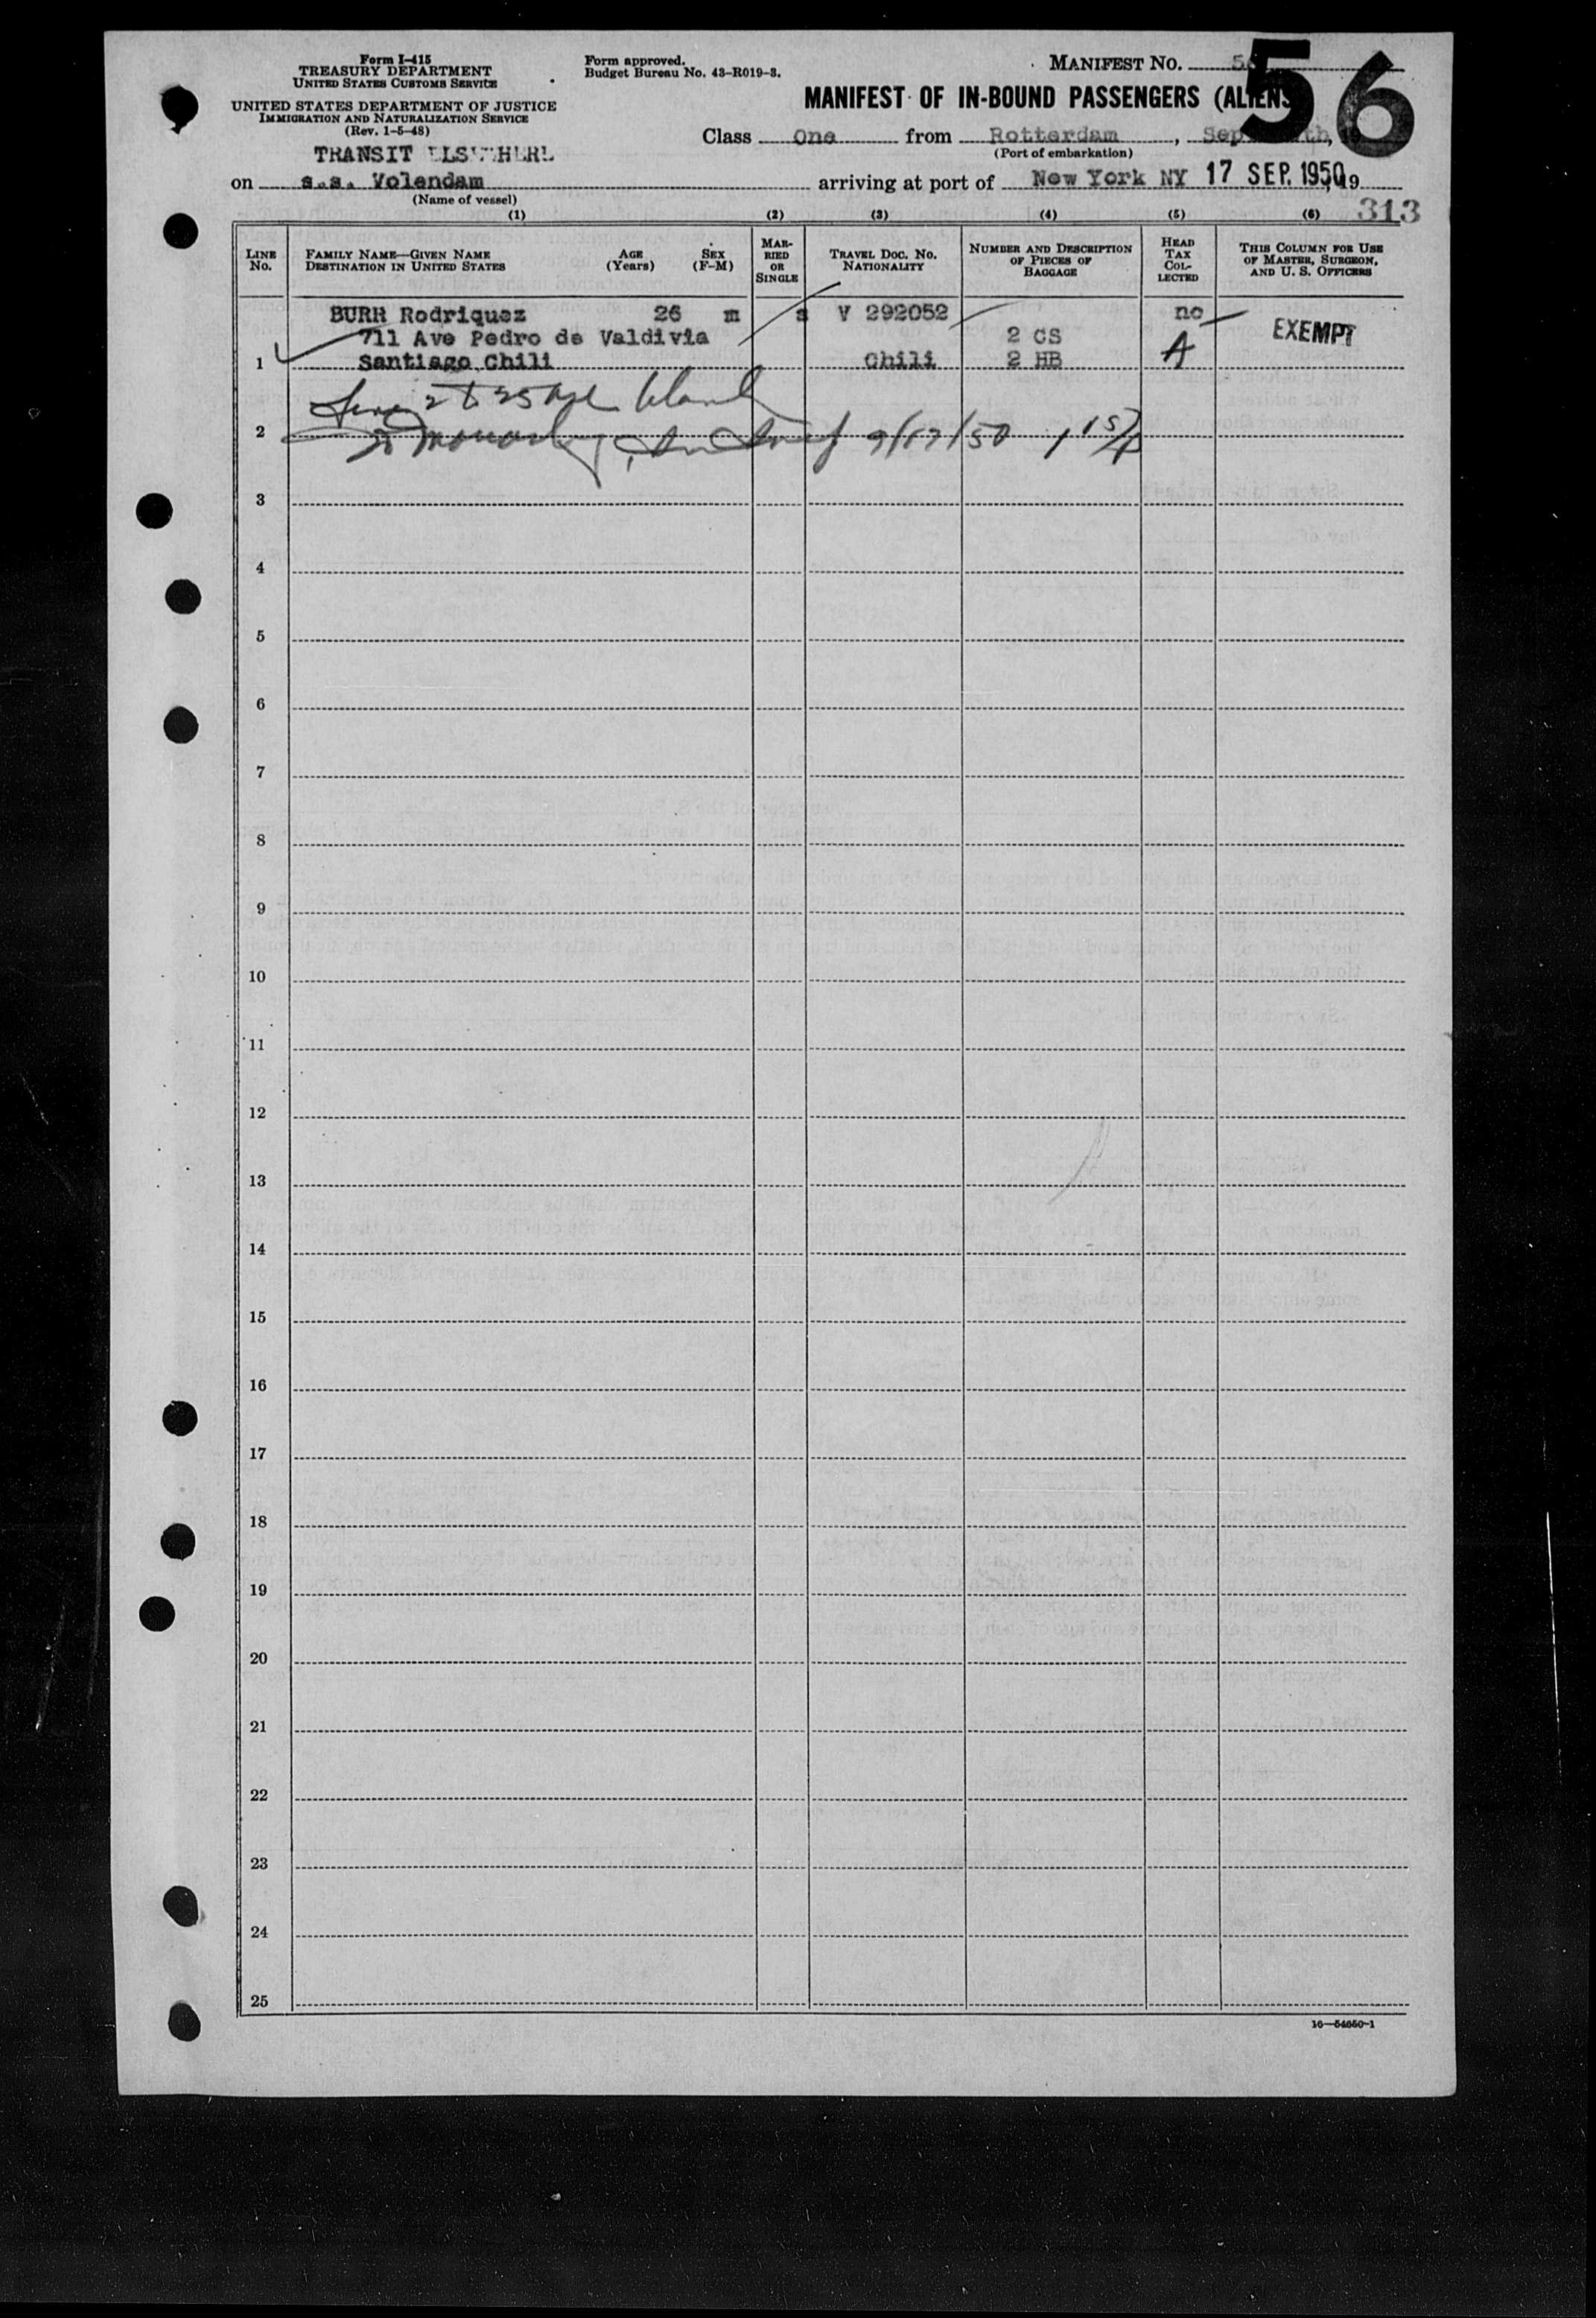 Form I-415
TREASURY DEPARTMENT
UNITED STATES CUSTOMS SERVICE
UNITED STATES DEPARTMENT OF JUSTICE
IMMIGRATION AND NATURALIZATION SERVICE
(Rev. 1-5-48)
Form approved.
Budget Bureau No. 43-R019-3.
MANIFEST NO.
56
MANIFEST OF IN-BOUND PASSENGERS (ALIENS
Class One from Rotterdam, Sep
(Port of embarkation)
TRANSIT
on s.s. Volendam arriving at port of New York NY 17 SEP. 1950, 19
(Name of vessel)
(1) (2) (3) (4) (5) (6) 313
LINE No.
FAMILY NAME—GIVEN NAME
DESTINATION IN UNITED STATES
AGE (Years)
SEX (F-M)
MARRIED OR SINGLE
TRAVEL DOC. NO. NATIONALITY
NUMBER AND DESCRIPTION OF PIECES OF BAGGAGE
HEAD TAX COLLECTED
THIS COLUMN FOR USE OF MASTER, SURGEON, AND U. S. OFFICERS
BURH Rodriquez 26 m s V 292052 no
711 Ave Pedro de Valdivia 2 CS EXEMPT
1 Santiago Chili Chili 2 HB A
2 9/17/50
3
4
5
6
7
8
9
10
11
12
13
14
15
16
17
18
19
20
21
22
23
24
25
16—54650-1